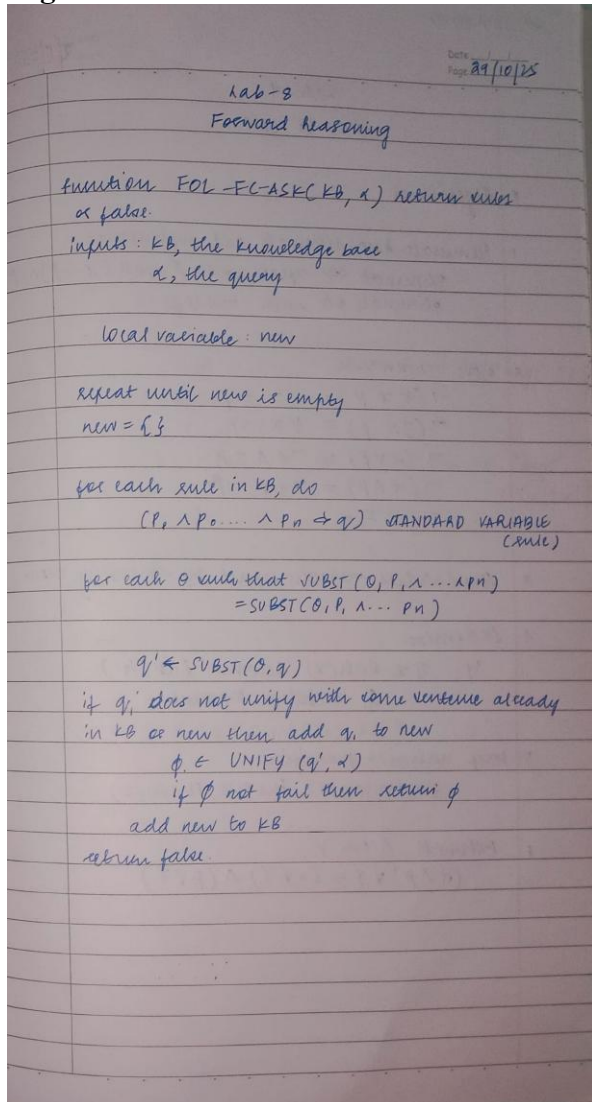 Date
Page 29/10/25
Lab-8
Forward Reasoning
function FOL-FC-ASK(KB, α) return rules
or false.
inputs : KB, the knowledge base
α, the query
local variable : new
repeat until new is empty
new = { }
for each rule in KB, do
(P, ∧ P0.... ∧ Pn → q) STANDARD VARIABLE
(rule)
for each θ such that SUBST (θ, P, ∧ ... ∧ Pn)
= SUBST (θ, P, ∧ ... Pn)
q' ← SUBST (θ, q)
if q' does not unify with some sentence already
in KB or new then add q, to new
φ ← UNIFY (q', α)
if φ not fail then return φ
add new to KB
return false.